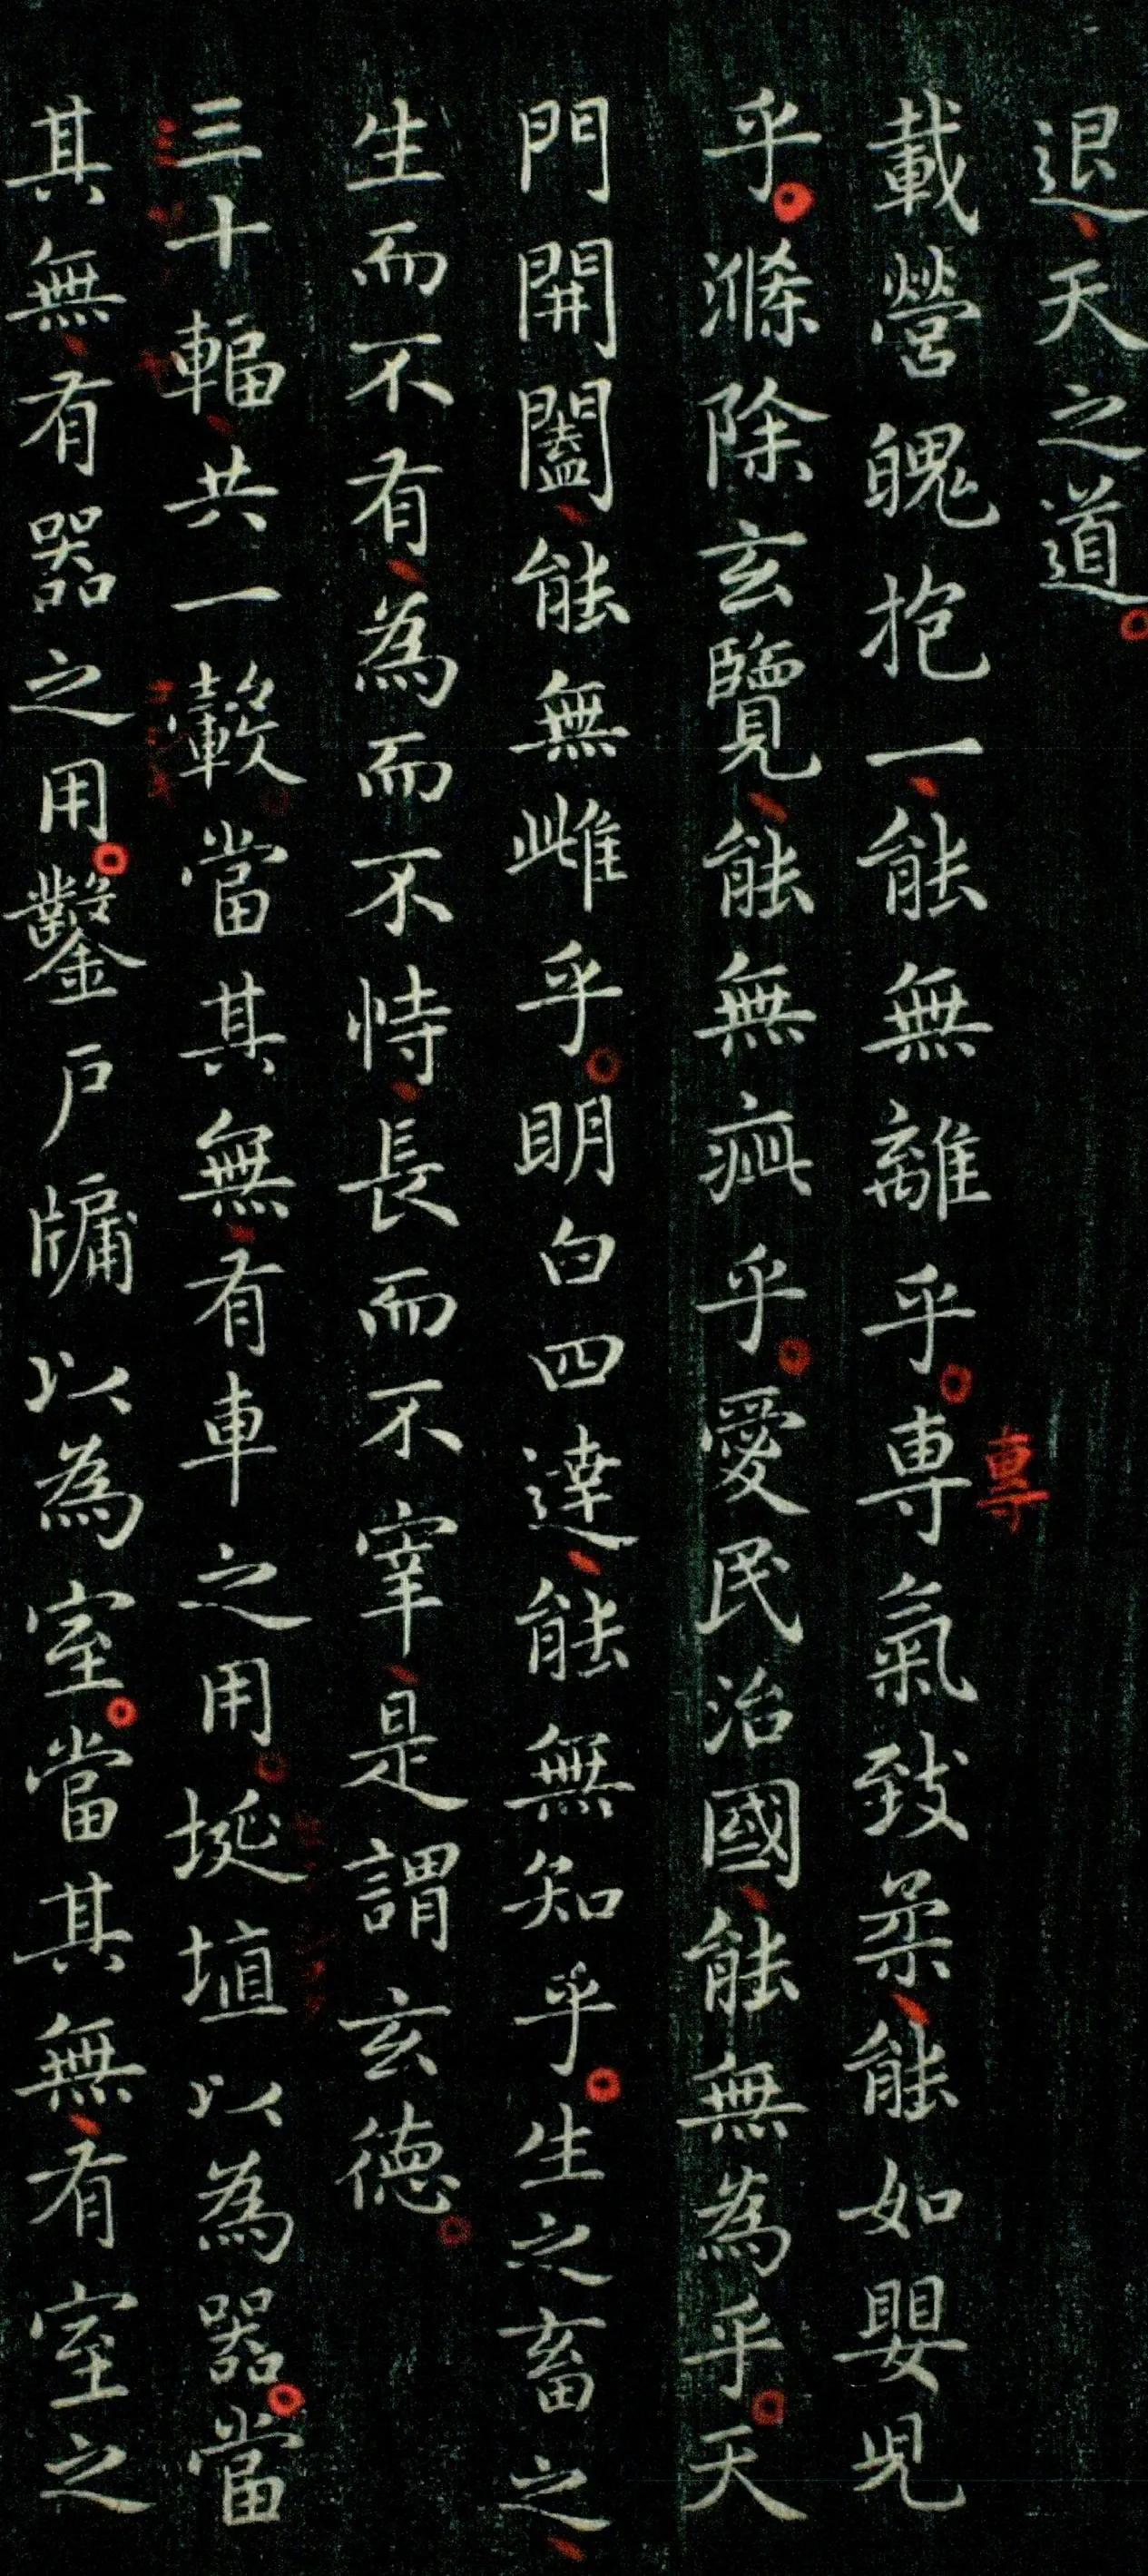 退天之道
載營魄抱一能無離乎專氣致柔能如嬰兒
乎滌除玄覽能無疵乎愛民治國能無為乎天
門開闔能無雌乎明白四達能無知乎生之畜之
生而不有為而不恃長而不宰是謂玄德
三十輻共一轂當其無有車之用埏埴以為器當
其無有器之用鑿戶牖以為室當其無有室之
專